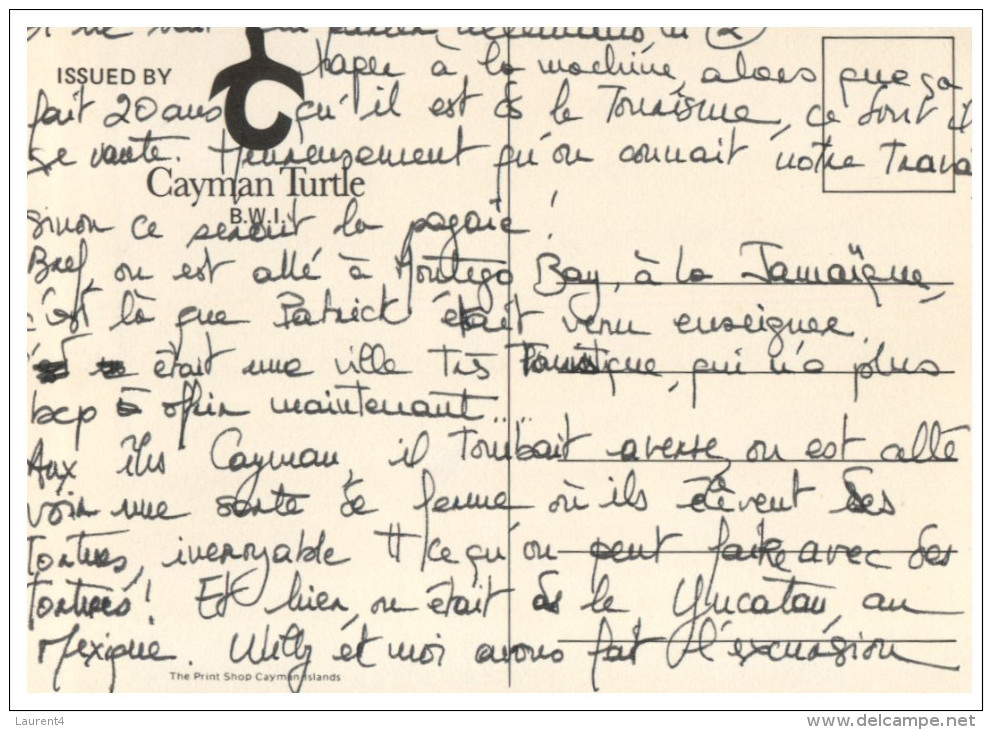 ISSUED BY
taper à la machine, alors que ça
fait 20 ans qu'il est ds le Tourisme, ce dont il
se vante. Heureusement qu'on connait notre Trava
Cayman Turtle
B.W.I.
sinon ce serait la pagaïe!
Bref, on est allé à Montego Bay, à la Jamaïque,
c'est là que Patrick était venu enseigner,
était une ville très Touristique, qui n'a plus
bcp à offrir maintenant...
Aux îles Cayman, il tombait averse, on est allé
voir une sorte de ferme où ils élèvent des
tortues, incroyable tt ce qu'on peut faire avec des
tortues! Et hier, on était ds le Yucatan, au
Mexique. Willy et moi avons fait l'excursion
The Print Shop Cayman Islands
Laurent4
www.delcampe.net